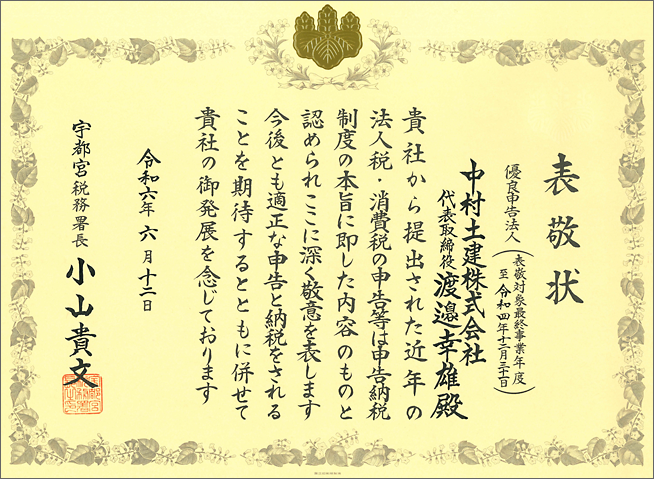 表敬状
優良申告法人
(表敬対象最終事業年度
至令和四年十二月三十日)
中村土建株式会社
代表取締役 渡邉幸雄殿
貴社から提出された近年の
法人税・消費税の申告等は申告納税
制度の本旨に即した内容のものと
認められここに深く敬意を表します
今後とも適正な申告と納税をされる
ことを期待するとともに併せて
貴社の御発展を念じております
令和六年六月十二日
宇都宮税務署長 小山貴文